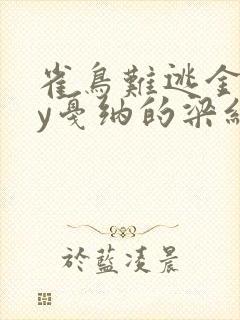 雀鳥難逃金
y戛纳的梁紅
於藍凌晨